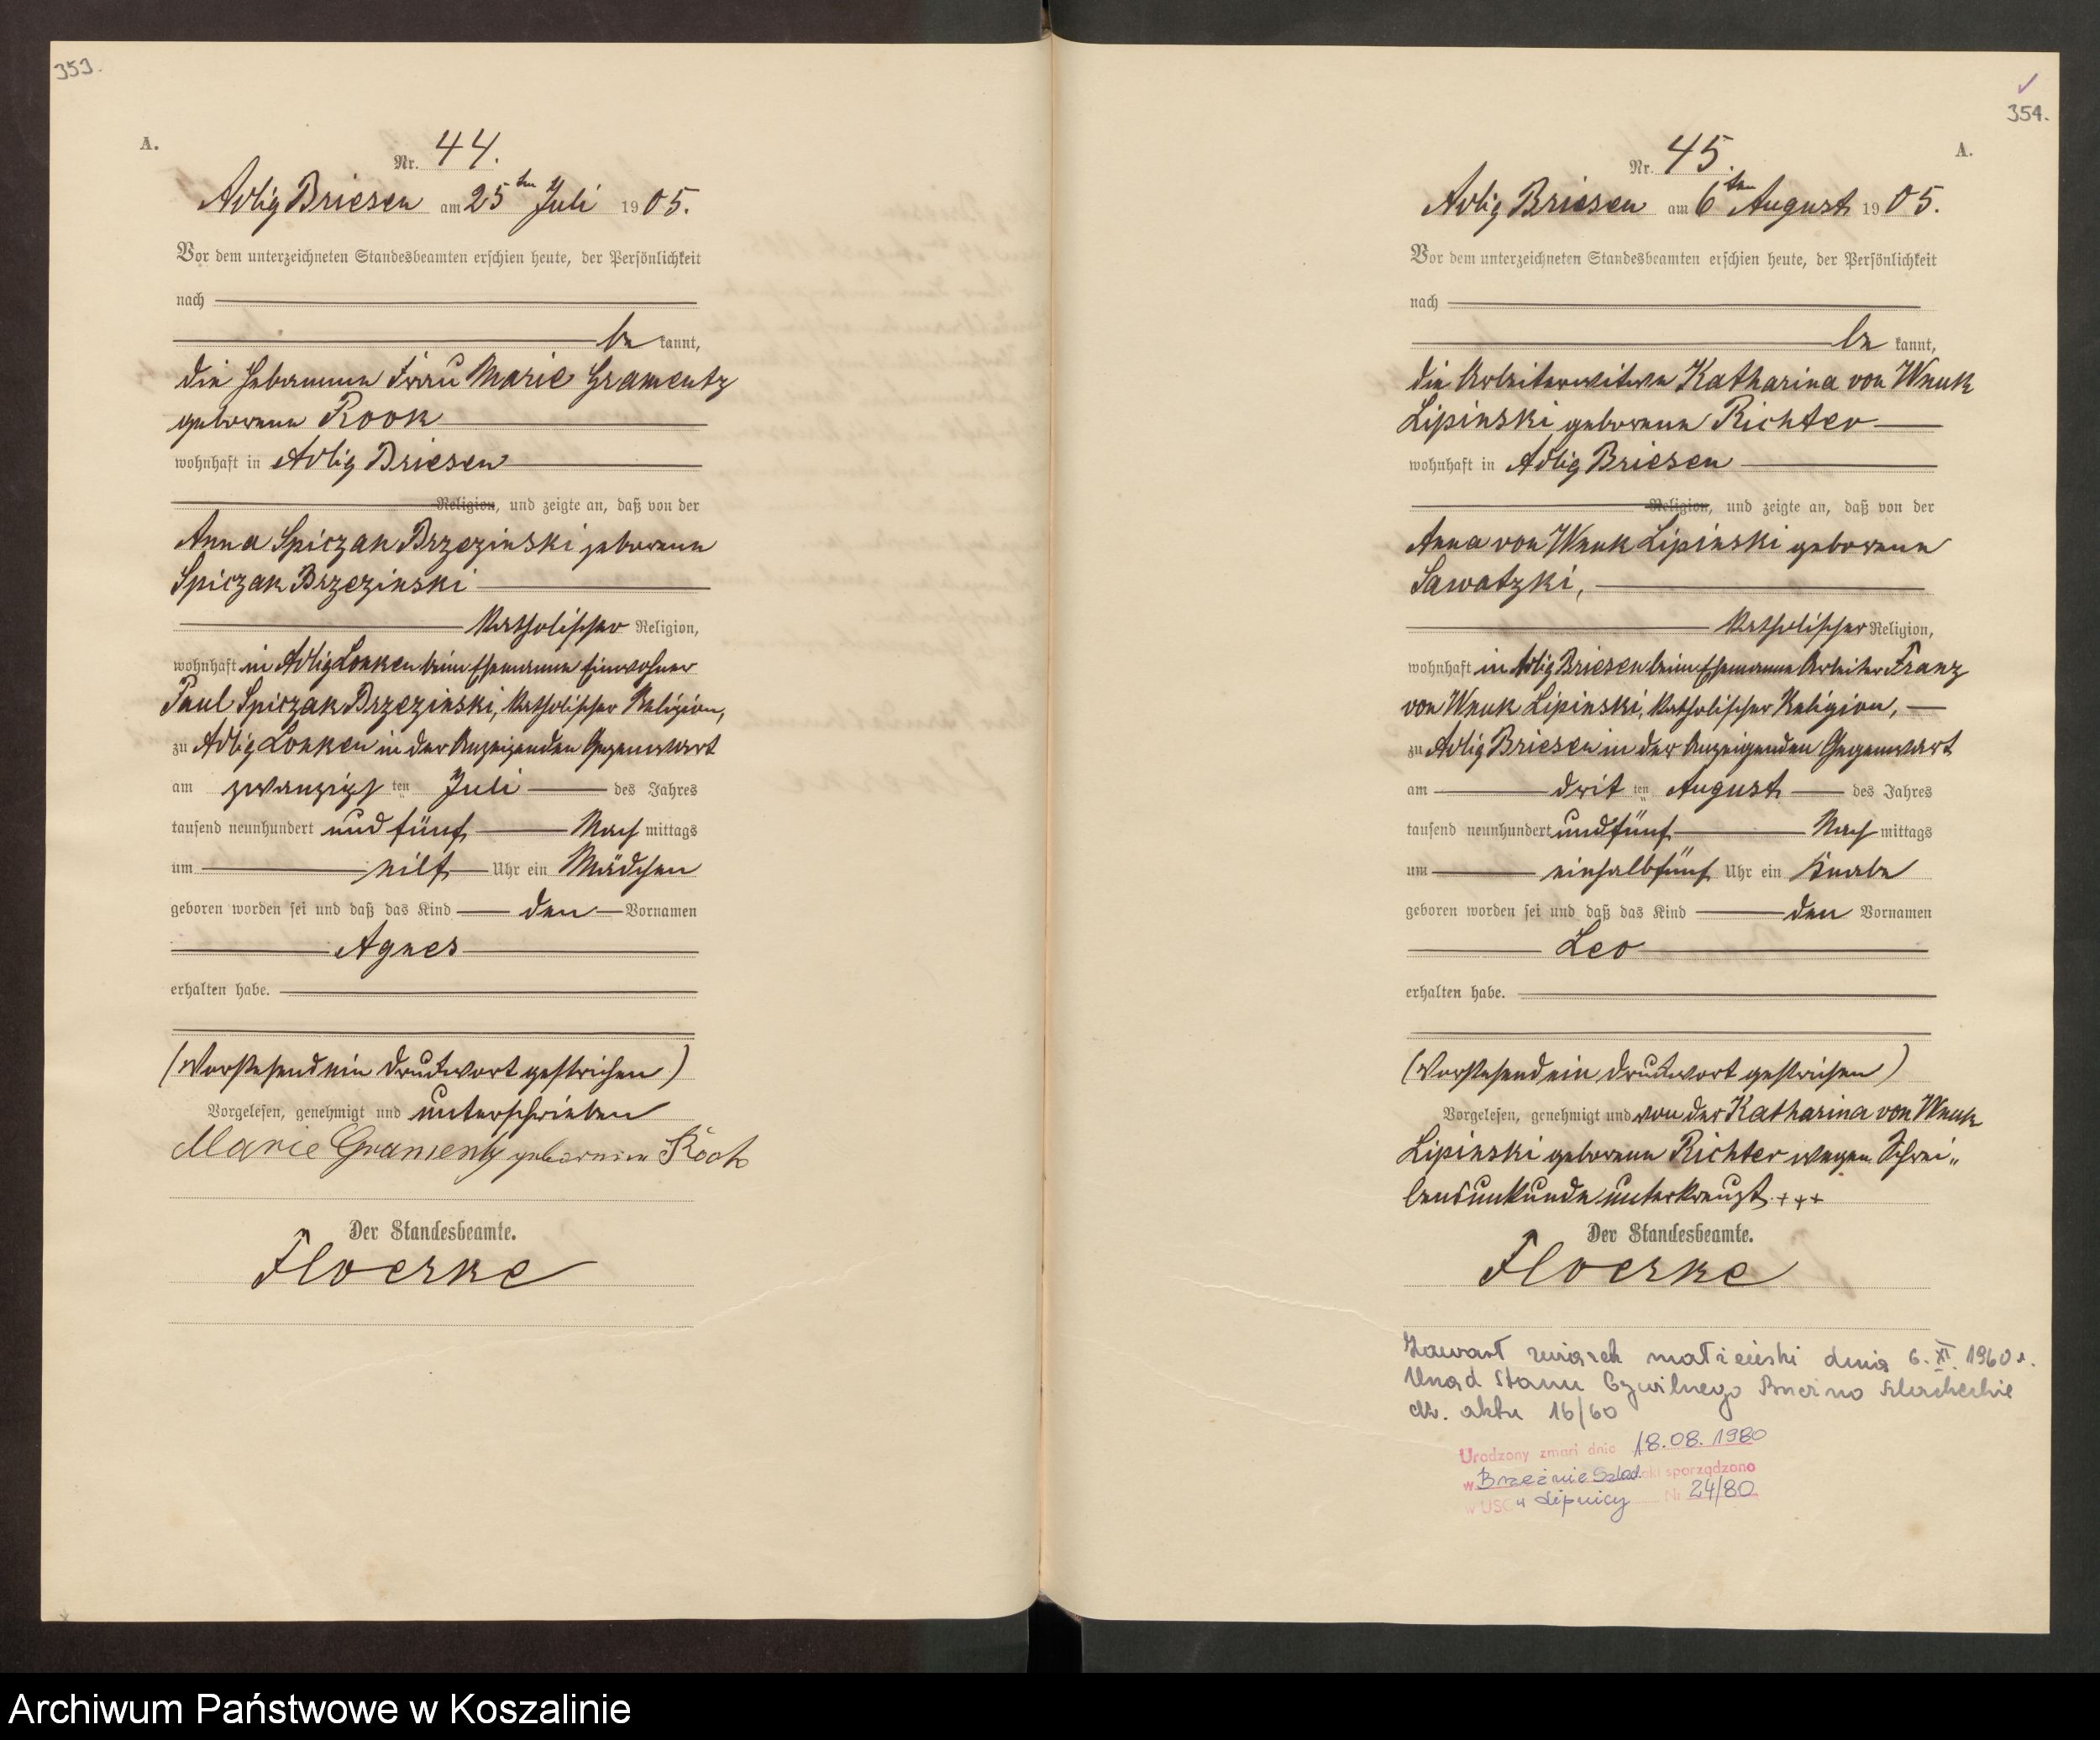 353.
A.
Nr. 44.
Adlig Briesen am 25ten Juli 1905.
Vor dem unterzeichneten Standesbeamten erschien heute, der Persönlichkeit
nach
be kannt,
die Hebamme Frau Marie Gramentz
geborene Kook
wohnhaft in Adlig Briesen
Religion, und zeigte an, daß von der
Anna Spiczak Brzezinski geborene
Spiczak Brzezinski
katholischer Religion,
wohnhaft in Adlig Lonken beim Ehemanne Einwohner
Paul Spiczak Brzezinski, katholischer Religion,
zu Adlig Lonken in der Anzeigenden Gegenwart
am zwanzigsten Juli des Jahres
tausend neunhundert und fünf Nachmittags
um elf Uhr ein Mädchen
geboren worden sei und daß das Kind den Vornamen
Agnes
erhalten habe.
(Vorstehend ein Druckwort gestrichen)
Vorgelesen, genehmigt und unterschrieben
Marie Gramentz geborene Kock
Der Standesbeamte.
Floerke
354.
A.
Nr. 45.
Adlig Briesen am 6ten August 1905.
Vor dem unterzeichneten Standesbeamten erschien heute, der Persönlichkeit
nach
be kannt,
die Arbeiterwitwe Katharina von Wnuk
Lipinski geborene Richter
wohnhaft in Adlig Briesen
Religion, und zeigte an, daß von der
Anna von Wnuk Lipinski geborene
Sawatzki,
katholischer Religion,
wohnhaft in Adlig Briesen beim Ehemanne Arbeiter Franz
von Wnuk Lipinski, katholischer Religion,
zu Adlig Briesen in der Anzeigenden Gegenwart
am dritten August des Jahres
tausend neunhundert und fünf Nachmittags
um einhalbfünf Uhr ein Knabe
geboren worden sei und daß das Kind den Vornamen
Leo
erhalten habe.
(Vorstehend ein Druckwort gestrichen)
Vorgelesen, genehmigt und von der Katharina von Wnuk
Lipinski geborene Richter wegen Schrei„
bensunkunde unterkreuzt +++
Der Standesbeamte.
Floerke
Zawarł związek małżeński dnia 6.XI.1960 r.
Urząd Stanu Cywilnego Brzeźno Szlacheckie
nr. aktu 16/60
Urodzony zmarł dnia 18.08.1980
w Brzeźnie Szlach. akt sporządzono
w USC w Lipnicy Nr 24/80
Archiwum Państwowe w Koszalinie